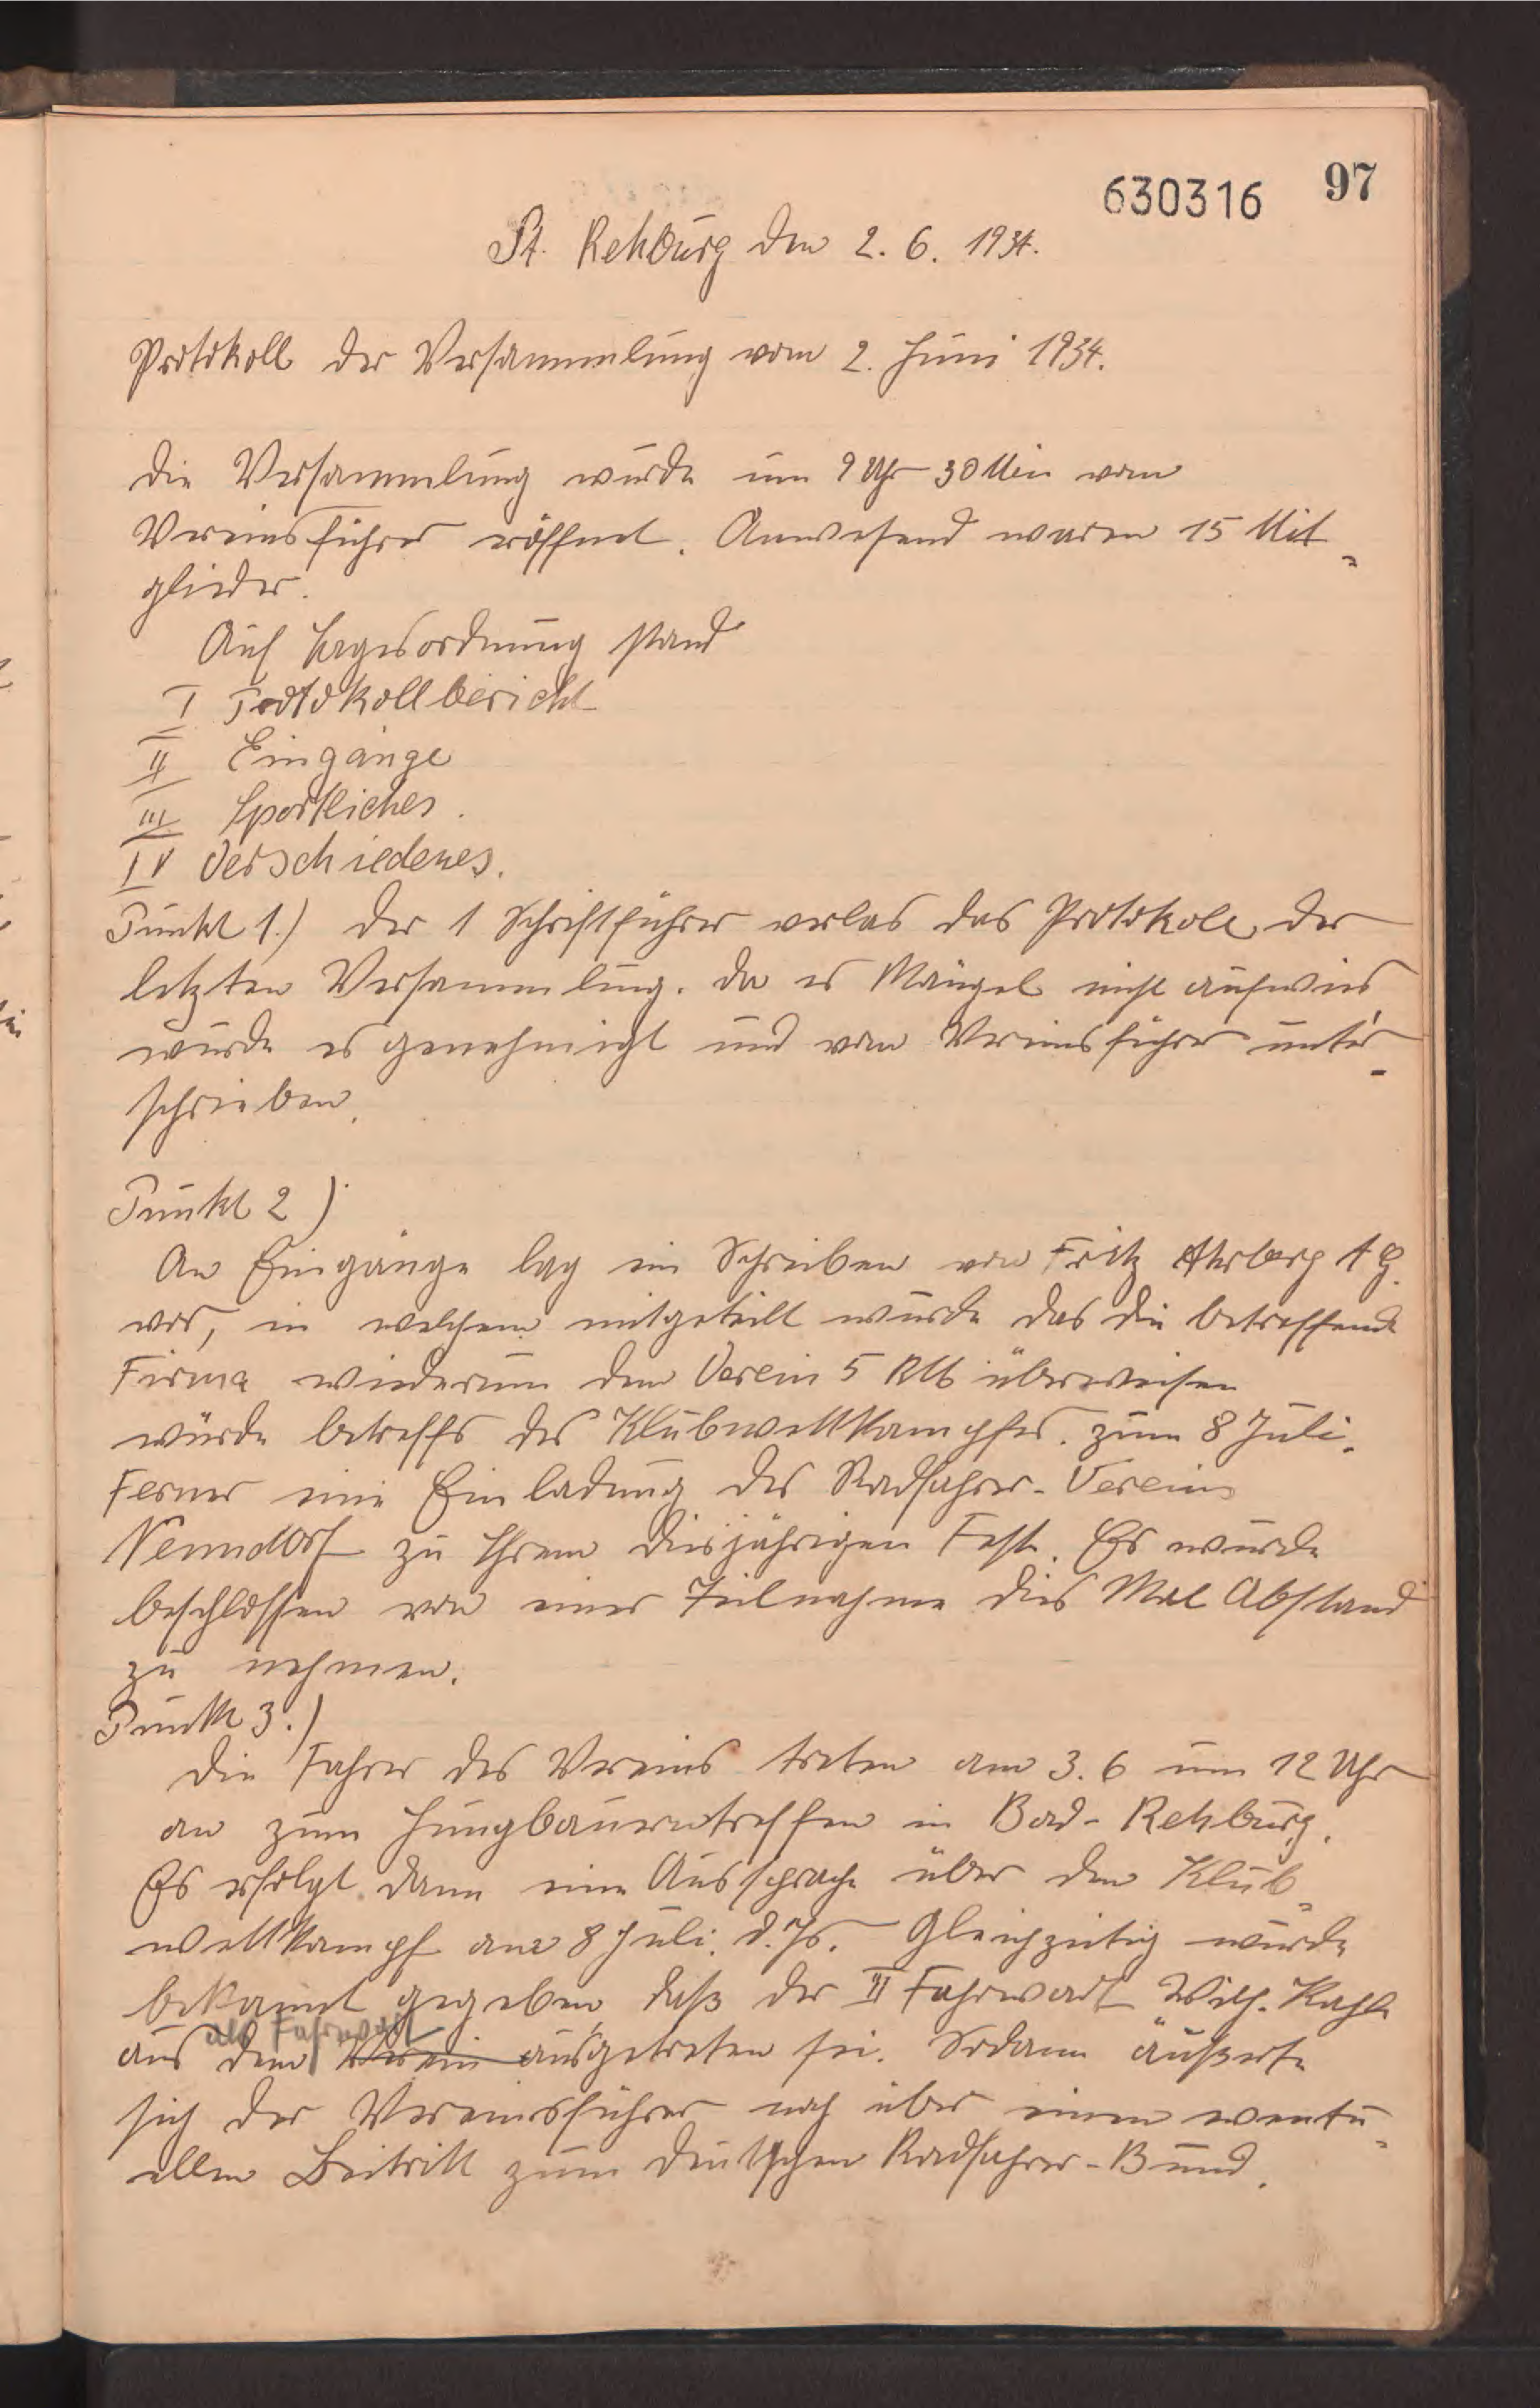 630316 97
St. Rehburg den 2. 6. 1934.
Protokoll der Versammlung vom 2. Juni 1934.
Die Versammlung wurde um 9 Uhr 30 Min vom
Vereinsführer eröffnet. Anwesend waren 15 Mit-
glieder.
Auf Tagesordnung stand
I Protokollbericht
II Eingänge
III Sportliches.
IV Verschiedenes.
Punkt 1.) Der 1 Schriftführer verlas das Protokoll der
letzten Versammlung. Da es Mängel nicht aufwies
wurde es genehmigt und vom Vereinsführer unter-
schrieben.
Punkt 2)
An Eingänge lag ein Schreiben von Fritz Ahrberg A G.
vor, in welchem mitgeteilt wurde das die betreffende
Firma wiederum dem Verein 5 RM überweisen
würde betreffs des Klubwettkampfes. zum 8 Juli.
Ferner eine Einladung des Radfahrer-Vereins
Nenndorf zu Ihrem diesjährigen Fest. Es wurde
beschlossen von einer Teilnahme dies Mal Abstand
zu nehmen.
Punkt 3.)
Die Fahrer des Vereins treten am 3. 6 um 12 Uhr
an zum Jungbauerntreffen in Bad-Rehburg.
Es erfolgt dann eine Aussprache über den Klub-
wettkampf am 8 Juli. d. Js. Gleichzeitig wurde
bekannt gegeben, daß der II Fahrwart Wilh. Kahle
als Fahrwart
aus dem Verein ausgetreten sei. Sodann äußerte
sich der Vereinsführer noch über einen eventu-
ellen Beitritt zum Deutschen Radfahrer-Bund.